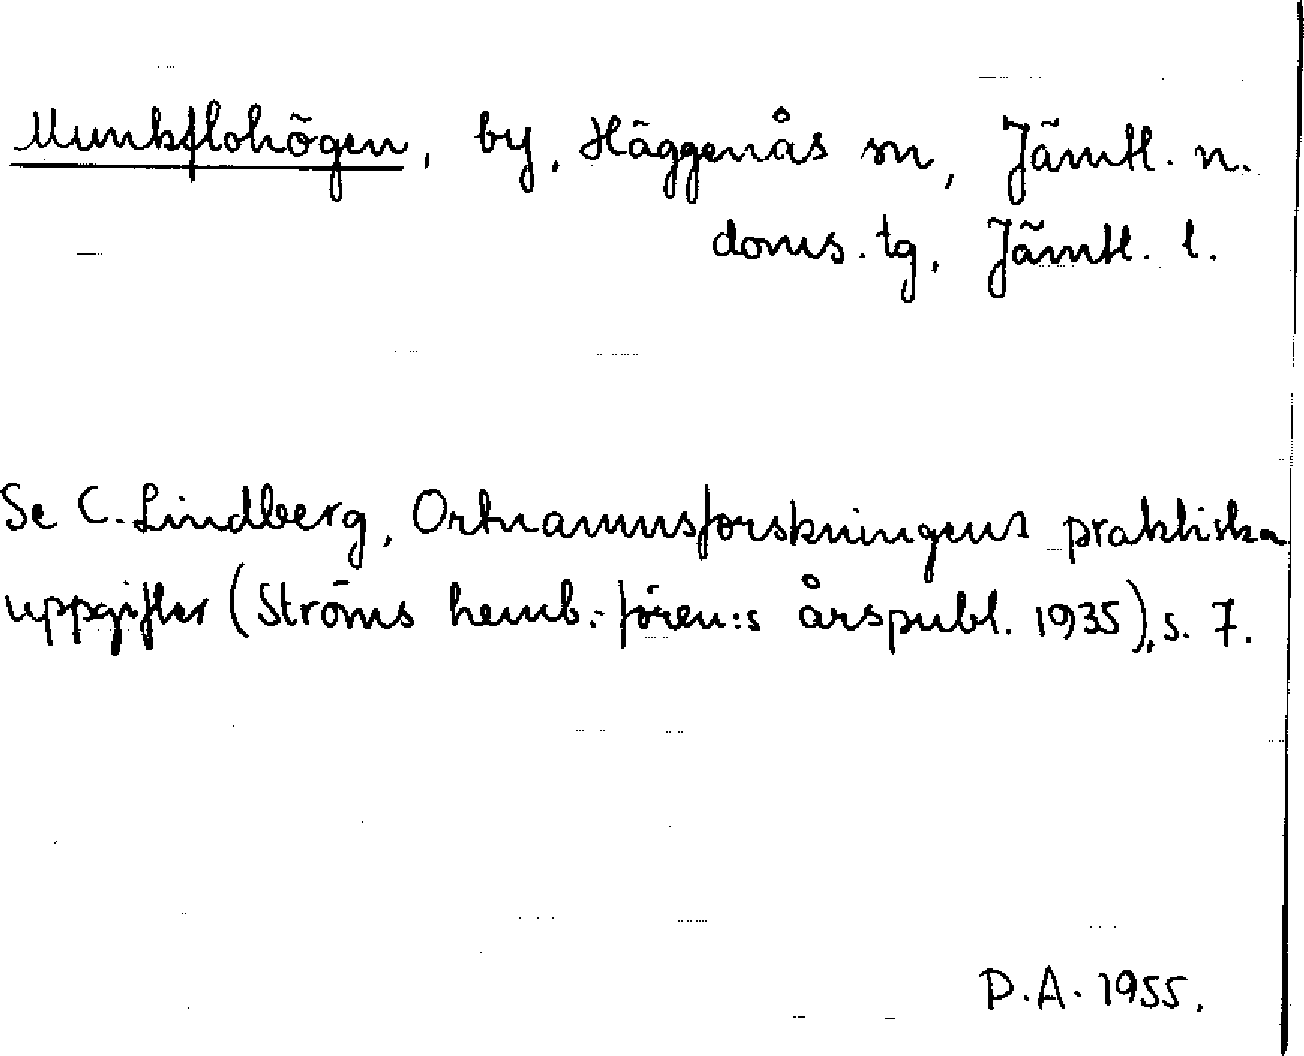 Munkflohögen, by, Häggenås sn, Jämtl. n.
doms. tg, Jämtl. l.
Se C. Lindberg, Ortnamnsforskningens praktiska
uppgifter (Ströms hemb.-fören:s årspubl. 1935), s. 7.
P.A. 1955.